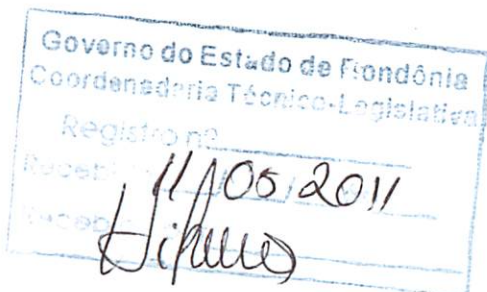 Governo do Estado de Rondônia
Coordenadoria Técnico-Legislativa
Registro nº
Recebi 11/05/2011
Receb